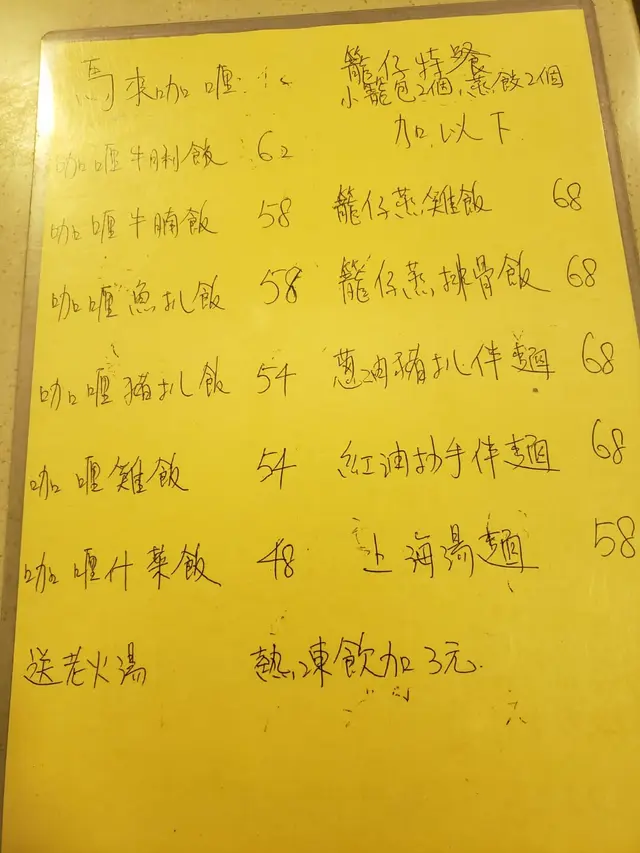 馬來咖喱
咖喱牛脷飯 62
咖喱牛腩飯 58
咖喱魚扒飯 58
咖喱豬扒飯 54
咖喱雞飯 54
咖喱什菜飯 48
送老火湯
籠仔特餐
小籠包2個 蒸餃2個
加以下
籠仔蒸雞飯 68
籠仔蒸排骨飯 68
蔥油豬扒伴麵 68
紅油抄手伴麵 68
上海湯麵 58
熱凍飲加3元